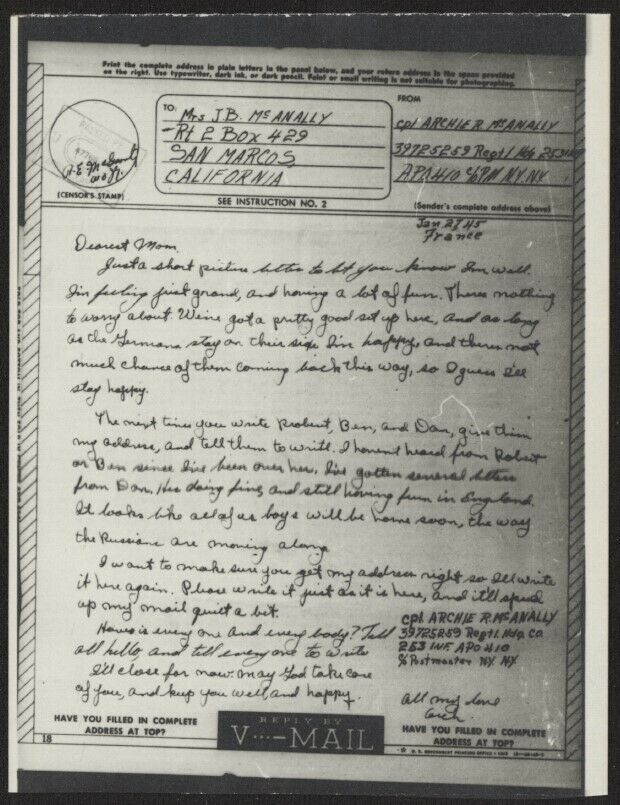 Print the complete address in plain letters in the panel below, and your return address in the space provided
on the right. Use typewriter, dark ink, or dark pencil. Faint or small writing is not suitable for photographing.
TO:
Mrs J.B. McANALLY
Rt 2 Box 429
SAN MARCOS
CALIFORNIA
FROM
cpl ARCHIE R. McANALLY
39725259 Regt'l Hdq 253
APO 410 c/o PM NY, NY
(CENSOR'S STAMP)
SEE INSTRUCTION NO. 2
(Sender's complete address above)
Jan 27 45
France
Dearest Mom,
Just a short picture letter to let you know I'm well.
I'm feeling just grand, and having a lot of fun. Theres nothing
to worry about. We've got a pretty good set up here, and as long
as the Germans stay on their side I'm happy, and theres not
much chance of them coming back this way, so I guess I'll
stay happy.
The next time you write Robert, Ben, and Dan, give them
my address, and tell them to write. I havent heard from Robert
or Ben since I've been over here. I've gotten several letters
from Dan. Hes doing fine, and still having fun in England.
It looks like all of us boys will be home soon, the way
the Russians are moving along.
I want to make sure you get my address right so I'll write
it here again. Please write it just as it is here, and it'll speed
up my mail quiet a bit.
cpl ARCHIE R. McANALLY
39725259 Regt'l. Hdq. Co
253 INF. APO 410
c/o Postmaster NY. NY.
Hows is every one and every body? Tell
all hello and tell every one to write
I'll close for now. May God take care
of you, and keep you well, and happy.
All my love
Arch
HAVE YOU FILLED IN COMPLETE
ADDRESS AT TOP?
REPLY BY
V···—MAIL
HAVE YOU FILLED IN COMPLETE
ADDRESS AT TOP?
18
U. S. GOVERNMENT PRINTING OFFICE